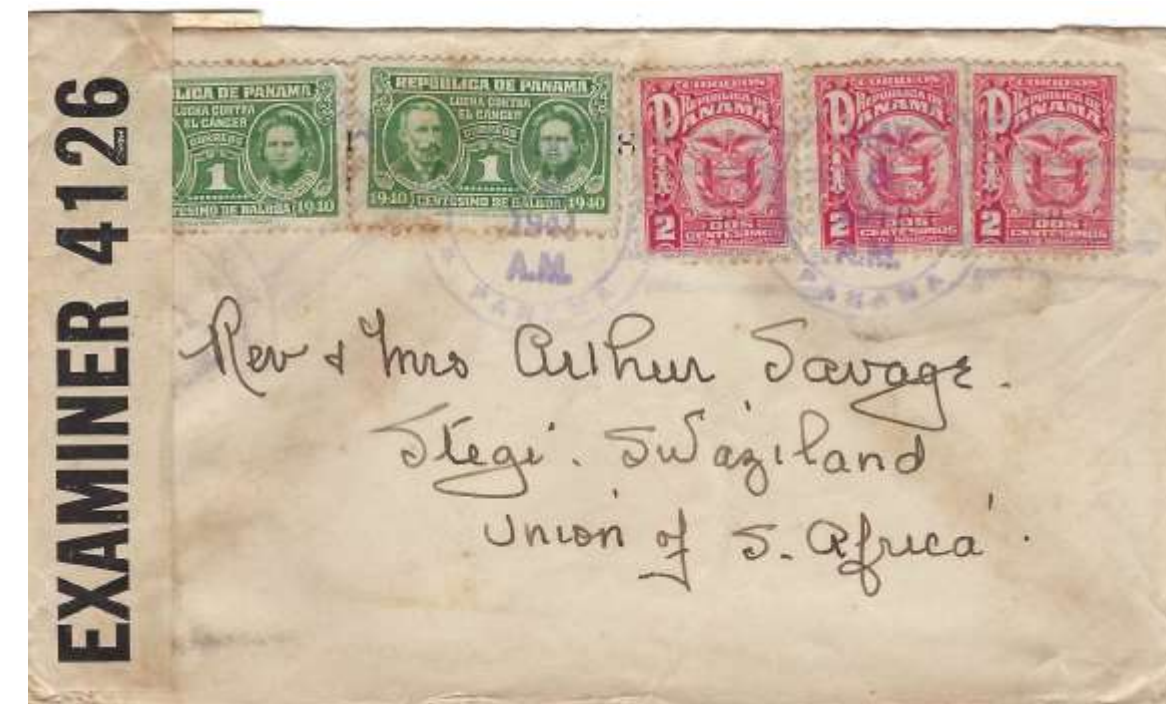 EXAMINER 4126
LICA DE PANAMA
LUCHA CONTRA
EL CÁNCER
CORREOS
1
TESIMO DE BALBOA 1940
REPUBLICA DE PANAMA
LUCHA CONTRA
EL CÁNCER
CORREOS
1
1940 CENTESIMO DE BALBOA 1940
CORREOS
REPUBLICA DE
PANAMA
2
DOS
CENTESIMOS
CORREOS
REPUBLICA DE
PANAMA
2
DOS
CENTESIMOS
CORREOS
REPUBLICA DE
PANAMA
2
DOS
CENTESIMOS
A.M.
PANAMA
A.M.
PANAMA
Rev & Mrs Arthur Savage.
Stegi. Swaziland
Union of S. Africa.